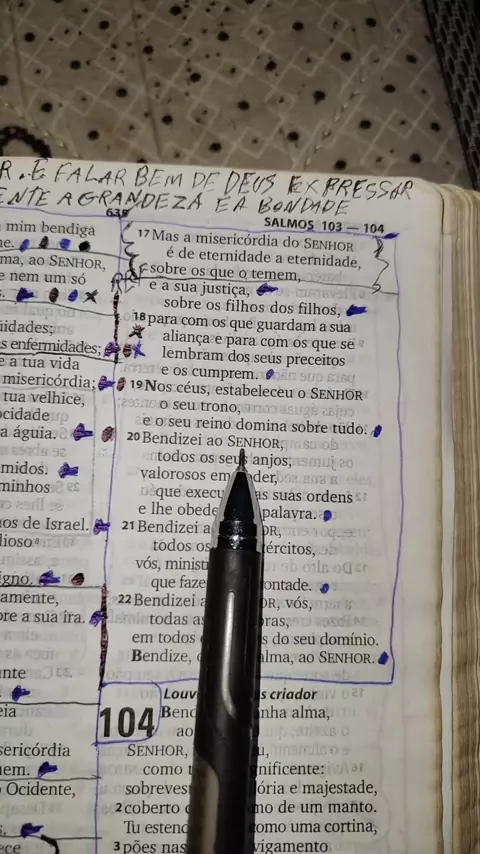 R. E FALAR BEM DE DEUS EXPRESSAR
ENTE A GRANDEZA E A BONDADE
639
SALMOS 103 — 104
mim bendiga
me.
ma, ao SENHOR,
e nem um só
s.
üidades;
s enfermidades;
e a tua vida
misericórdia;
tua velhice,
ocidade
a águia.
midos.
minhos
os de Israel.
dioso
igno.
amente,
re a sua ira.
ante
eia
sericórdia
em.
Ocidente,
s.
ece
17 Mas a misericórdia do SENHOR
é de eternidade a eternidade,
sobre os que o temem,
e a sua justiça,
sobre os filhos dos filhos,
18 para com os que guardam a sua
aliança e para com os que se
lembram dos seus preceitos
e os cumprem.
19 Nos céus, estabeleceu o SENHOR
o seu trono,
e o seu reino domina sobre tudo.
20 Bendizei ao SENHOR,
todos os seus anjos,
valorosos em oder,
que execu as suas ordens
e lhe obede palavra.
21 Bendizei a OR,
todos os ércitos,
vós, minist
que faze ontade.
22 Bendizei a OR, vós,
todas a ras,
em todos s do seu domínio.
Bendize, alma, ao SENHOR.
Louv s criador
104
Bend nha alma,
ao
SENHOR, u,
como t gnificente:
sobreves ória e majestade,
2 coberto o mo de um manto.
Tu estend como uma cortina,
3 pões nas vigamento